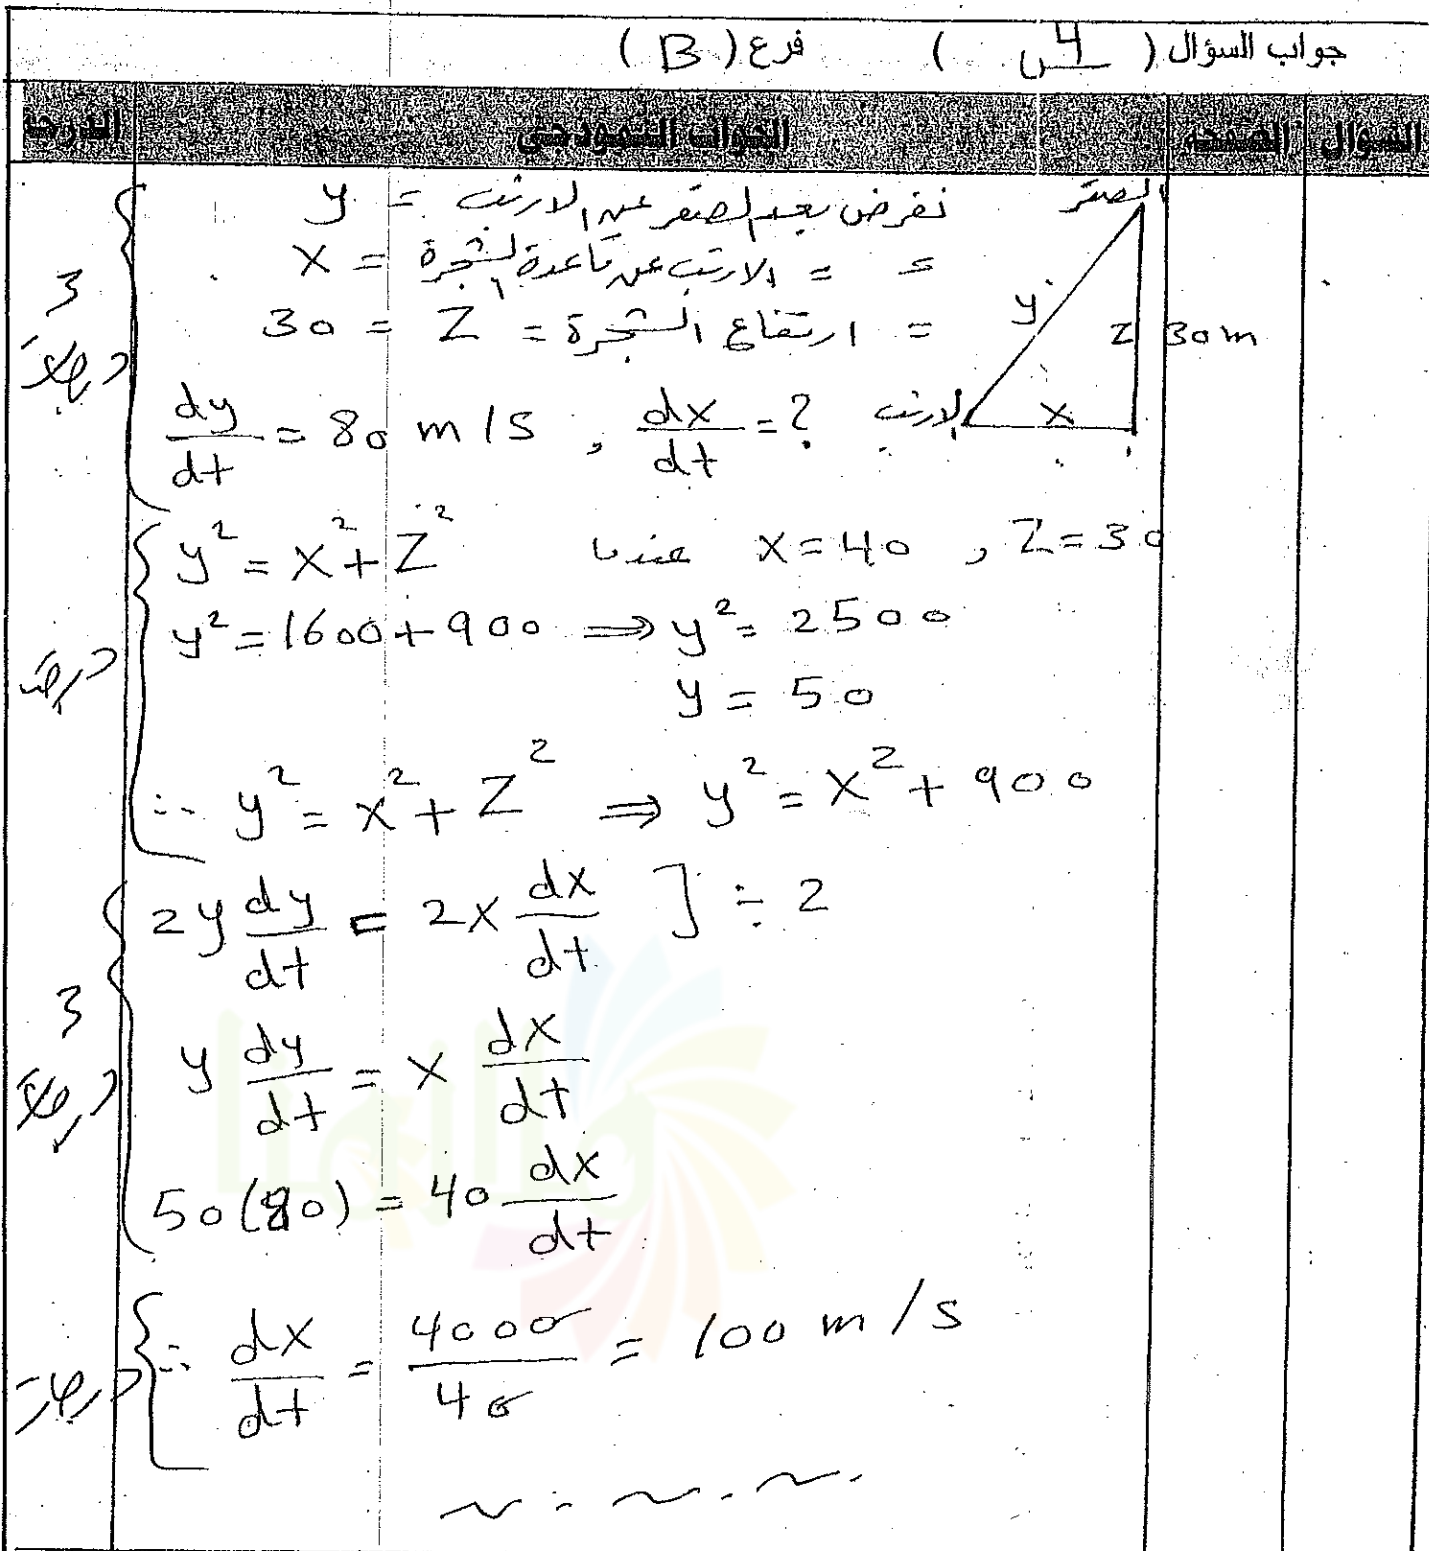 جواب السؤال ( س4 ) فرع ( B )
السؤال الصفحة الجواب النموذجي الدرجة
نفرض بعد الصقر عن الارنب = y
= = الارنب عن قاعدة الشجرة = x
= ارتفاع الشجرة = Z = 30
الصقر
y
Z 30m
x
الارنب
3 درجات
dy/dt = 80 m/s , dx/dt = ?
y² = x² + Z² عندما x = 40 , Z = 30
y² = 1600 + 900 ⇒ y² = 2500
درجة
y = 50
∴ y² = x² + Z² ⇒ y² = x² + 900
2y dy/dt = 2x dx/dt ] ÷ 2
3 درجات
y dy/dt = x dx/dt
50(80) = 40 dx/dt
∴ dx/dt = 4000/40 = 100 m/s